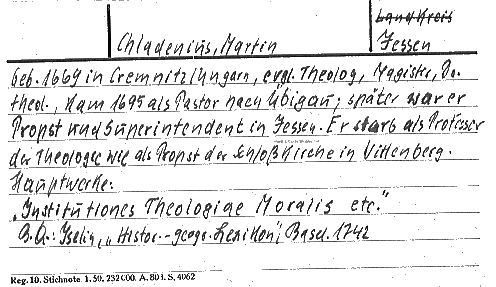 Landkreis
Chladenius, Martin Jessen
Geb. 1669 in Cremnitz/Ungarn, evgl. Theolog, Magister, Dr.
theol., kam 1695 als Pastor nach Übigau; später war er
Propst und Superintendent in Jessen. Er starb als Professor
der Theologie wie als Propst der Schloßkirche in Wittenberg.
Hauptwerke:
„Institutiones Theologiae Moralis etc."
B.A.: Iselin, „Histor.-geogr. Lexikon", Basel. 1742
Reg. 10. Stichnote. 1. 50. 232 000. A. 803. S. 4062